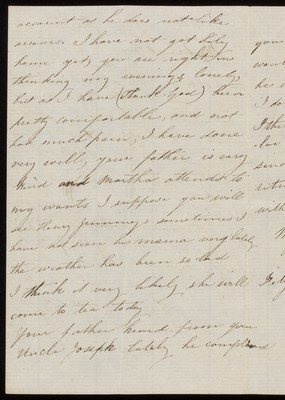 account as he does not like
I have not got Lily
home yet, you are right in
thinking my evenings lonely,
but as I have (thank God) been
pretty comfortable, and not
had much pain, I have done
very well, your father is very
kind and Martha attends to
my wants I suppose you will
see Henry Jennings sometimes I
have not seen his mama very lately
the weather has been so bad
I think it very likely she will
come to tea today
your father heard from your
Uncle Joseph lately he complains
your
want
he
I do
I th
for
send
retu
with